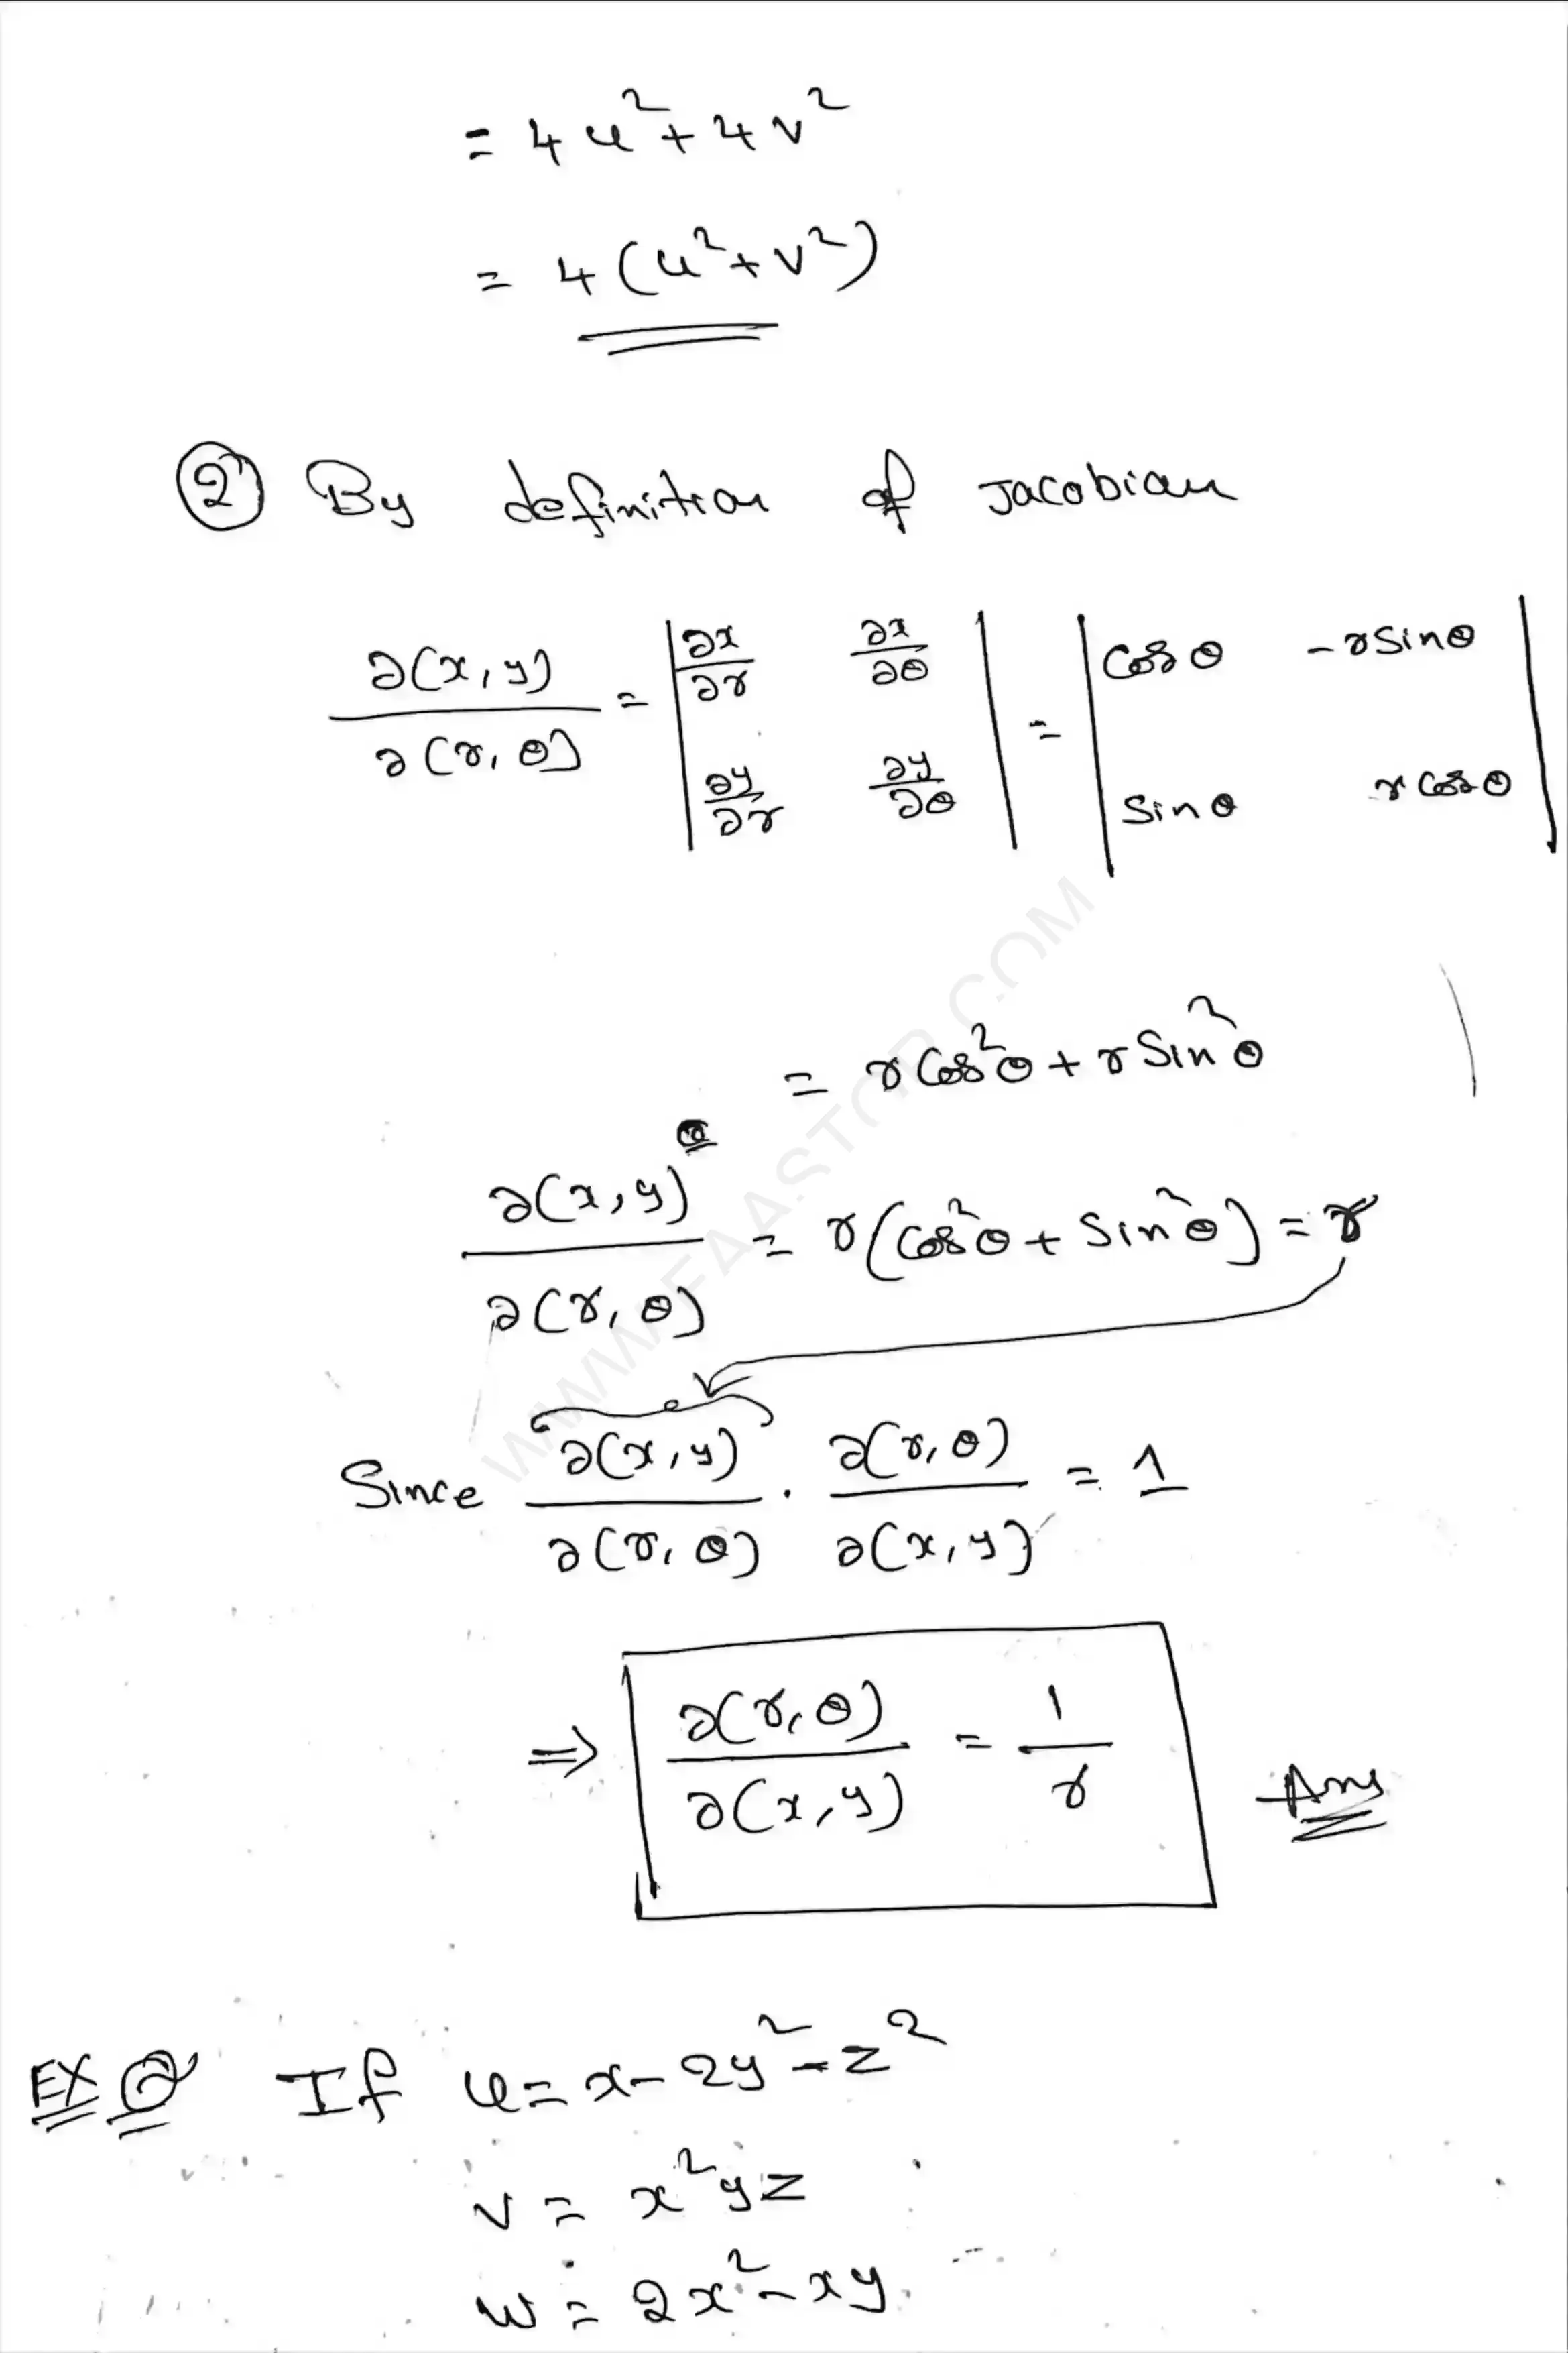 = 4u²+4v²
= 4(u²+v²)
② By definition of Jacobian
∂(x,y)/∂(r,θ) = |∂x/∂r ∂x/∂θ; ∂y/∂r ∂y/∂θ| = |Cosθ -rSinθ; Sinθ rCosθ|
= rCos²θ + rSin²θ
∂(x,y)/∂(r,θ) = r(Cos²θ + Sin²θ) = r
Since ∂(x,y)/∂(r,θ) . ∂(r,θ)/∂(x,y) = 1
⇒ ∂(r,θ)/∂(x,y) = 1/r Ans
EX ② If u = x - 2y² - z²
v = x²yz
w = 2x² - xy.